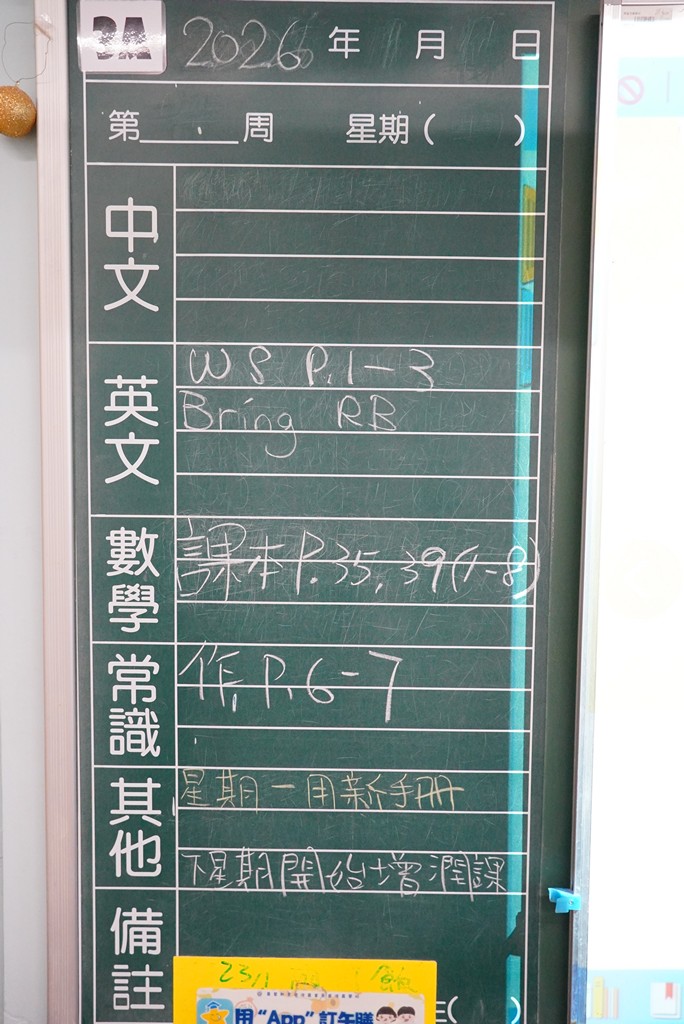 3A 2026 年 月 日
第 周 星期( )
中文
英文
WS P.1-3
Bring RB
數學
課本P.35, 39(1-8)
常識
作,P.6-7
其他
星期一用新手冊
下星期開始增潤課
備註
23/1
用“App”訂午膳